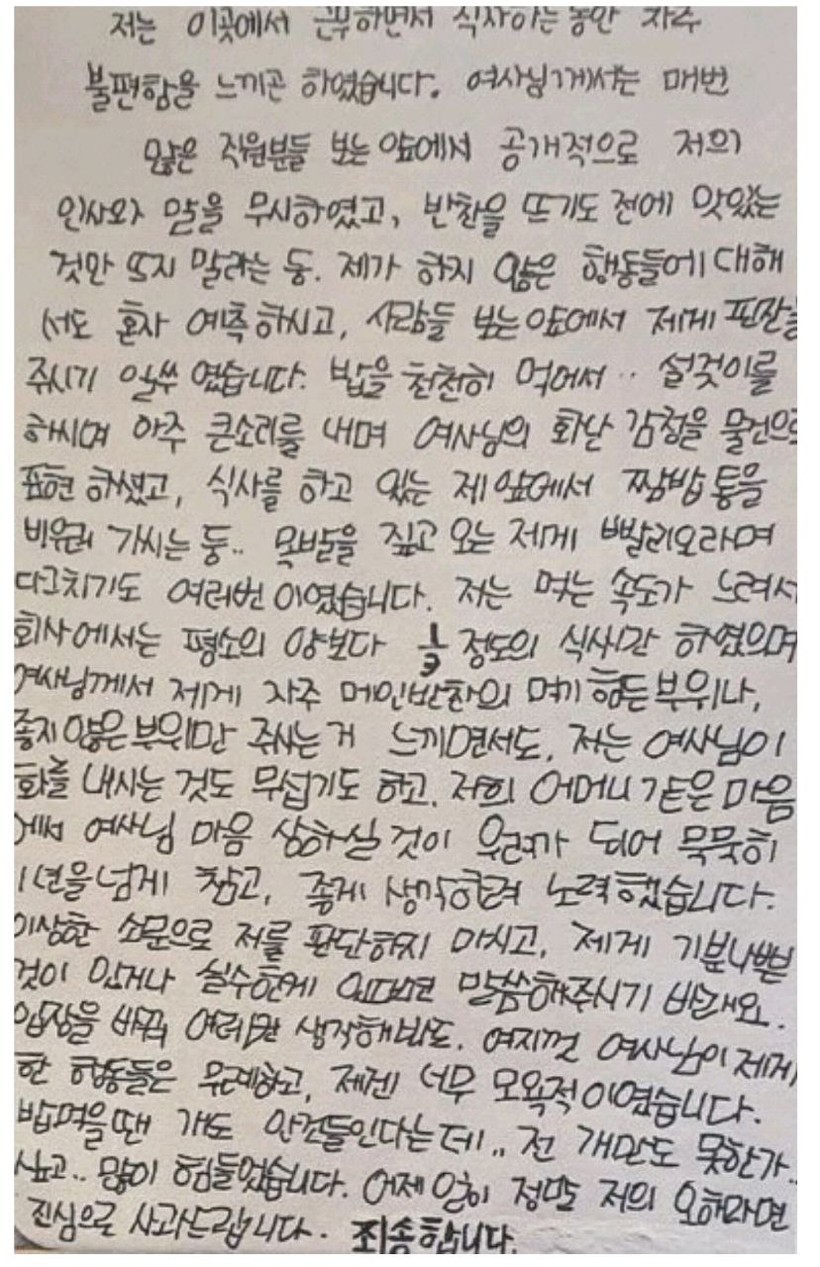 저는 이곳에서 근무하면서 식사하는 동안 자주
불편함을 느끼곤 하였습니다. 여사님께서는 매번
많은 직원분들 보는 앞에서 공개적으로 저희
인사와 말을 무시하였고, 반찬을 뜨기도 전에 맛있는
것만 뜨지 말라는 둥. 제가 하지 않은 행동들에 대해
서도 혼자 예측하시고, 사람들 보는앞에서 제게 핀잔을
주시기 일쑤 였습니다. 밥을 천천히 먹어서.. 설겆이를
하시며 아주 큰소리를 내며 여사님의 화난 감정을 물건으로
표현 하셨고, 식사를 하고 있는 제 앞에서 짬밥통을
비우러 가시는 둥.. 목발을 짚고 오는 제게 빨리오라며
다그치기도 여러번 이였습니다. 저는 먹는 속도가 느려서
회사에서는 평소의 양보다 1/3 정도의 식사만 하였으며
여사님께서 제게 자주 메인반찬의 먹기 힘든 부위나,
좋지 않은 부위만 주시는 거 느끼면서도, 저는 여사님이
화를 내시는 것도 무섭기도 하고, 저희 어머니 같은 마음
에서 여사님 마음 상하실 것이 우려가 되어 묵묵히
1년을 넘게 참고, 좋게 생각하려 노력했습니다.
이상한 소문으로 저를 판단하지 마시고, 제게 기분나쁜
것이 있거나 실수한게 있다면 말씀해주시기 바래요.
입장을 바꿔 여러번 생각해봐도, 여지껏 여사님이 제게
한 행동들은 무례하고, 제겐 너무 모욕적이였습니다.
밥먹을땐 개도 안건들인다는데.. 전 개만도 못한가..
싶고.. 많이 힘들었습니다. 어제 일이 정말 저의 오해라면
진심으로 사과드립니다. 죄송합니다.